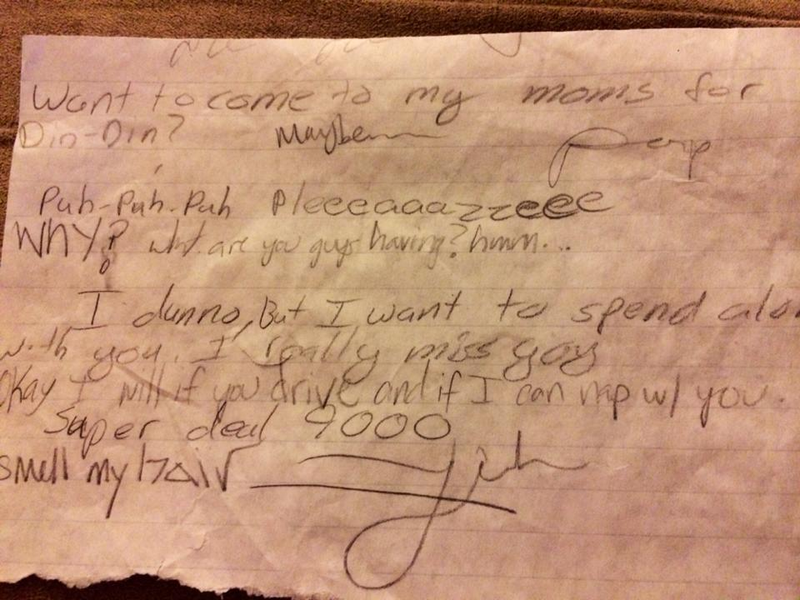 Want to come to my moms for
Din-Din? Maybe
Puh-Puh-Puh Pleeeaaazzzeeee
WHY? what are you guys having? hmm...
I dunno, But I want to spend
with you. I really miss you
Okay I will if you drive and if I can nap w/ you.
Super deal 9000
smell my hair